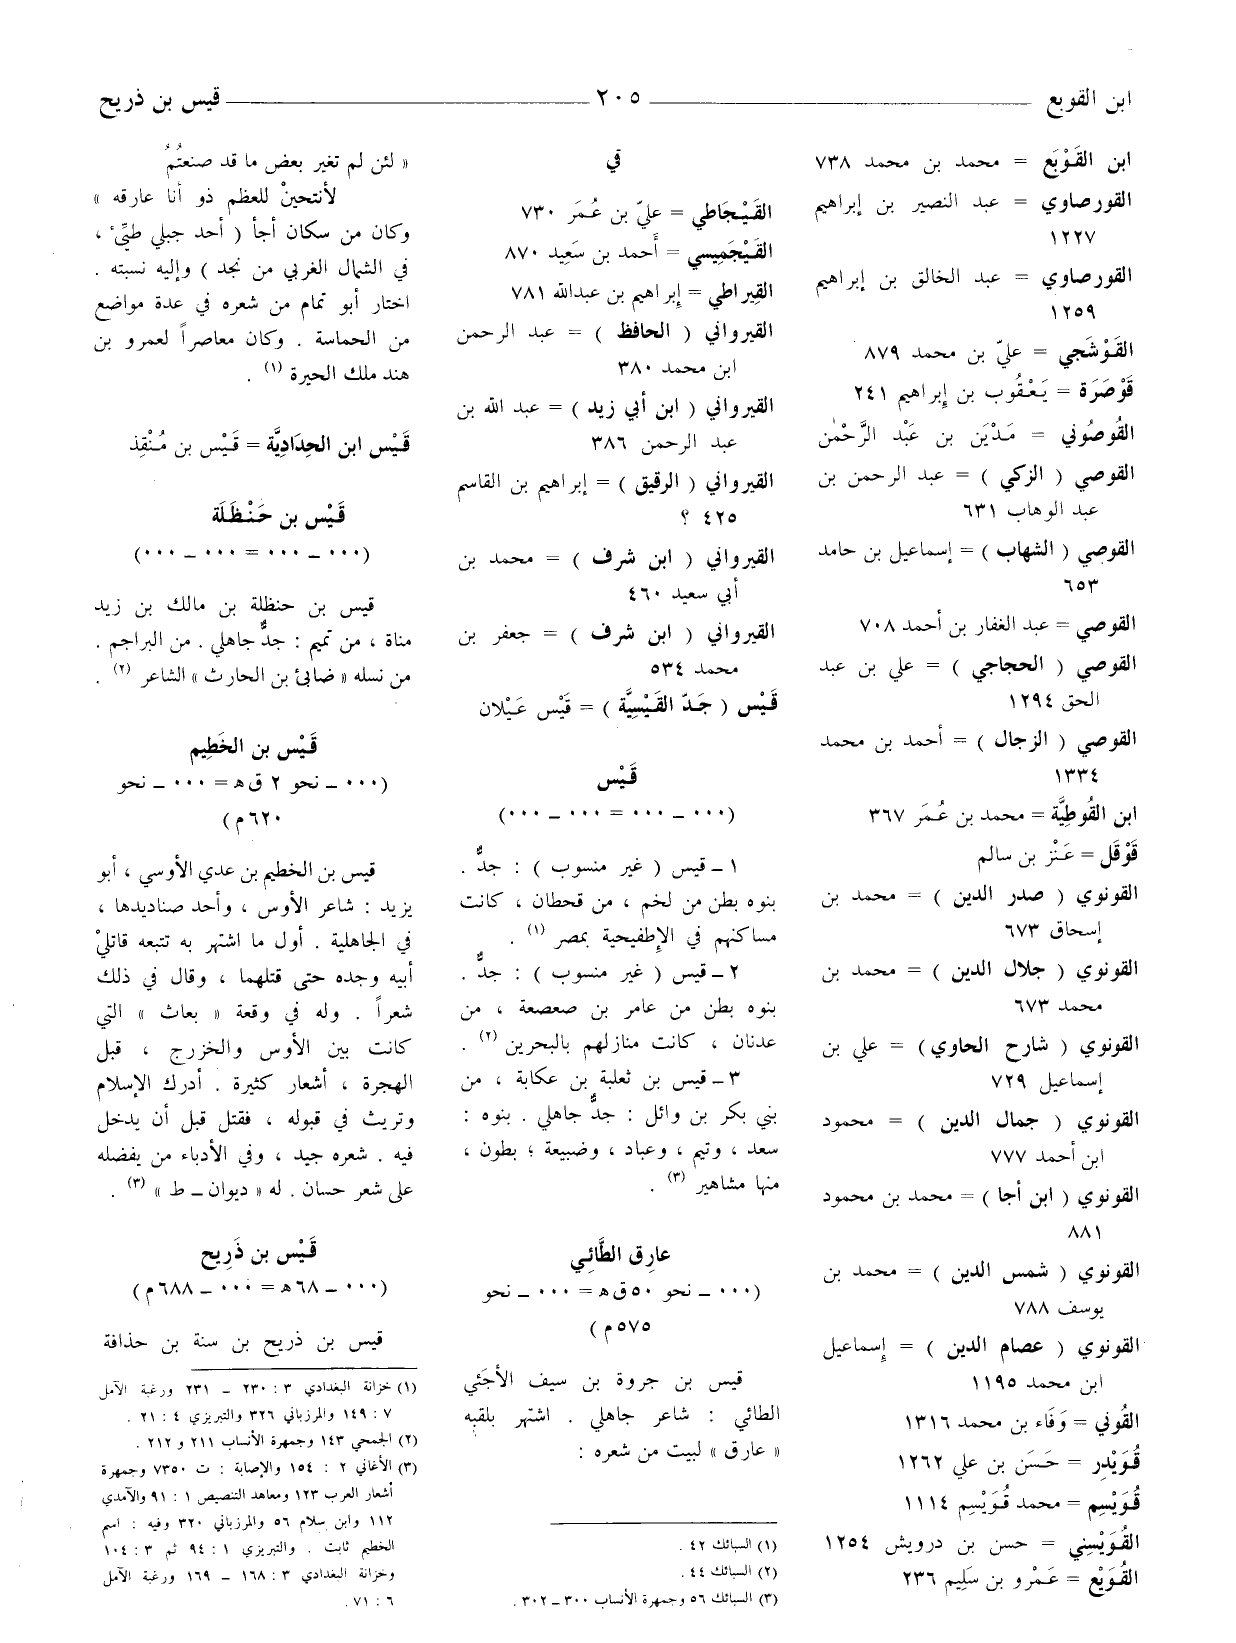 ابن القوبع ـــــــ ٢٠٥ ـــــــ قيس بن ذريح
ابن القَوْبَع = محمد بن محمد ٧٣٨
القورصاوي = عبد النصير بن إبراهيم
١٢٢٧
القورصاوي = عبد الخالق بن إبراهيم
١٢٥٩
القَوْشَجي = عليّ بن محمد ٨٧٩
قَوْصَرَة = يَعْقُوب بن إبراهيم ٢٤١
القُوصُوني = مَدْيَن بن عَبْد الرَّحْمٰن
القوصي ( الزكي ) = عبد الرحمن بن
عبد الوهاب ٦٣١
القوصي ( الشهاب ) = إسماعيل بن حامد
٦٥٣
القوصي = عبد الغفار بن أحمد ٧٠٨
القوصي ( الحجاجي ) = علي بن عبد
الحق ١٢٩٤
القوصي ( الزجال ) = أحمد بن محمد
١٣٣٤
ابن القُوطِيَّة = محمد بن عُمَر ٣٦٧
قَوْقَل = عَنْز بن سالم
القونوي ( صدر الدين ) = محمد بن
إسحاق ٦٧٣
القونوي ( جلال الدين ) = محمد بن
محمد ٦٧٣
القونوي ( شارح الحاوي ) = علي بن
إسماعيل ٧٢٩
القونوي ( جمال الدين ) = محمود
ابن أحمد ٧٧٧
القونوي ( ابن أجا ) = محمد بن محمود
٨٨١
القونوي ( شمس الدين ) = محمد بن
يوسف ٧٨٨
القونوي ( عصام الدين ) = إسماعيل
ابن محمد ١١٩٥
القُوني = وَفَاء بن محمد ١٣١٦
قُوَيْدِر = حَسَن بن علي ١٢٦٢
قُوَيْسِم = محمد قُوَيْسِم ١١١٤
القُوَيْسِني = حسن بن درويش ١٢٥٤
القُوَيْع = عَمْرو بن سَلِيم ٢٣٦
قي
القَيْجَاطي = عليّ بن عُمَر ٧٣٠
القَيْجَمِيسي = أَحمد بن سَعِيد ٨٧٠
القِيراطي = إبراهيم بن عبدالله ٧٨١
القيرواني ( الحافظ ) = عبد الرحمن
ابن محمد ٣٨٠
القيرواني ( ابن أبي زيد ) = عبد الله بن
عبد الرحمن ٣٨٦
القيرواني ( الرقيق ) = إبراهيم بن القاسم
٤٢٥ ؟
القيرواني ( ابن شرف ) = محمد بن
أبي سعيد ٤٦٠
القيرواني ( ابن شرف ) = جعفر بن
محمد ٥٣٤
قَيْس ( جَدّ القَيْسِيَّة ) = قَيْس عَيْلان
قَيْس
(٠٠٠ ـ ٠٠٠ = ٠٠٠ ـ ٠٠٠)
١ ـ قيس ( غير منسوب ) : جدٌّ .
بنوه بطن من لخم ، من قحطان ، كانت
مساكنهم في الإطفيحية بمصر (١) .
٢ ـ قيس ( غير منسوب ) : جدٌّ .
بنوه بطن من عامر بن صعصعة ، من
عدنان ، كانت منازلهم بالبحرين (٢) .
٣ ـ قيس بن ثعلبة بن عكابة ، من
بني بكر بن وائل : جدٌّ جاهلي . بنوه :
سعد ، وتيم ، وعباد ، وضبيعة ؛ بطون ،
منها مشاهير (٣) .
عارِق الطَّائِي
(٠٠٠ ـ نحو ٥٠ ق ه = ٠٠٠ ـ نحو
٥٧٥ م)
قيس بن جروة بن سيف الأجَئي
الطائي : شاعر جاهلي . اشتهر بلقبه
« عارق » لبيت من شعره :
(١) السبائك ٤٢ .
(٢) السبائك ٤٤ .
(٣) السبائك ٥٦ وجمهرة الأنساب ٣٠٠ ـ ٣٠٢ .
« لئن لم تغير بعض ما قد صنعتُمُ
لأنتحينْ للعظم ذو أنا عارقه »
وكان من سكان أجأ ( أحد جبلي طيِّئ ،
في الشمال الغربي من نجد ) وإليه نسبته .
اختار أبو تمام من شعره في عدة مواضع
من الحماسة . وكان معاصراً لعمرو بن
هند ملك الحيرة (١) .
قَيْس ابن الحِدَادِيَّة = قَيْس بن مُنْقِذ
قَيْس بن حَنْظَلَة
(٠٠٠ ـ ٠٠٠ = ٠٠٠ ـ ٠٠٠)
قيس بن حنظلة بن مالك بن زيد
مناة ، من تميم : جدٌّ جاهلي . من البراجم .
من نسله « ضابئ بن الحارث » الشاعر (٢) .
قَيْس بن الخَطِيم
(٠٠٠ ـ نحو ٢ ق ه = ٠٠٠ ـ نحو
٦٢٠ م)
قيس بن الخطيم بن عدي الأوسي ، أبو
يزيد : شاعر الأوس ، وأحد صناديدها ،
في الجاهلية . أول ما اشتهر به تتبعه قاتليْ
أبيه وجده حتى قتلهما ، وقال في ذلك
شعراً . وله في وقعة « بعاث » التي
كانت بين الأوس والخزرج ، قبل
الهجرة ، أشعار كثيرة . أدرك الإسلام
وتريث في قبوله ، فقتل قبل أن يدخل
فيه . شعره جيد ، وفي الأدباء من يفضله
على شعر حسان . له « ديوان ـ ط » (٣) .
قَيْس بن ذَرِيح
(٠٠٠ ـ ٦٨ ه = ٠٠٠ ـ ٦٨٨ م)
قيس بن ذريح بن سنة بن حذافة
(١) خزانة البغدادي ٣ : ٢٣٠ ـ ٢٣١ ورغبة الآمل
٧ : ١٤٩ والمرزباني ٣٢٦ والتبريزي ٤ : ٢١ .
(٢) الجمحي ١٤٣ وجمهرة الأنساب ٢١١ و ٢١٢ .
(٣) الأغاني ٢ : ١٥٤ والإصابة : ت ٧٣٥٠ وجمهرة
أشعار العرب ١٢٣ ومعاهد التنصيص ١ : ٩١ والآمدي
١١٢ وابن سلام ٥٦ والمرزباني ٣٢٠ وفيه : اسم
الخطيم ثابت . والتبريزي ١ : ٩٤ ثم ٣ : ١٠٤
وخزانة البغدادي ٣ : ١٦٨ ـ ١٦٩ ورغبة الآمل
٦ : ٧١ .